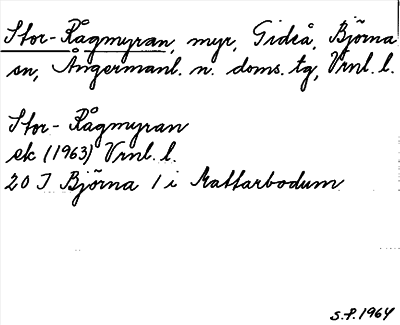 Stor-Rågmyran, myr, Gideå, Björna
sn, Ångermanl. n. doms. tg, Vrnl. l.
Stor-Rågmyran
ek (1963) Vrnl. l.
20 J Björna 1 i Mattarbodum
S.P. 1964